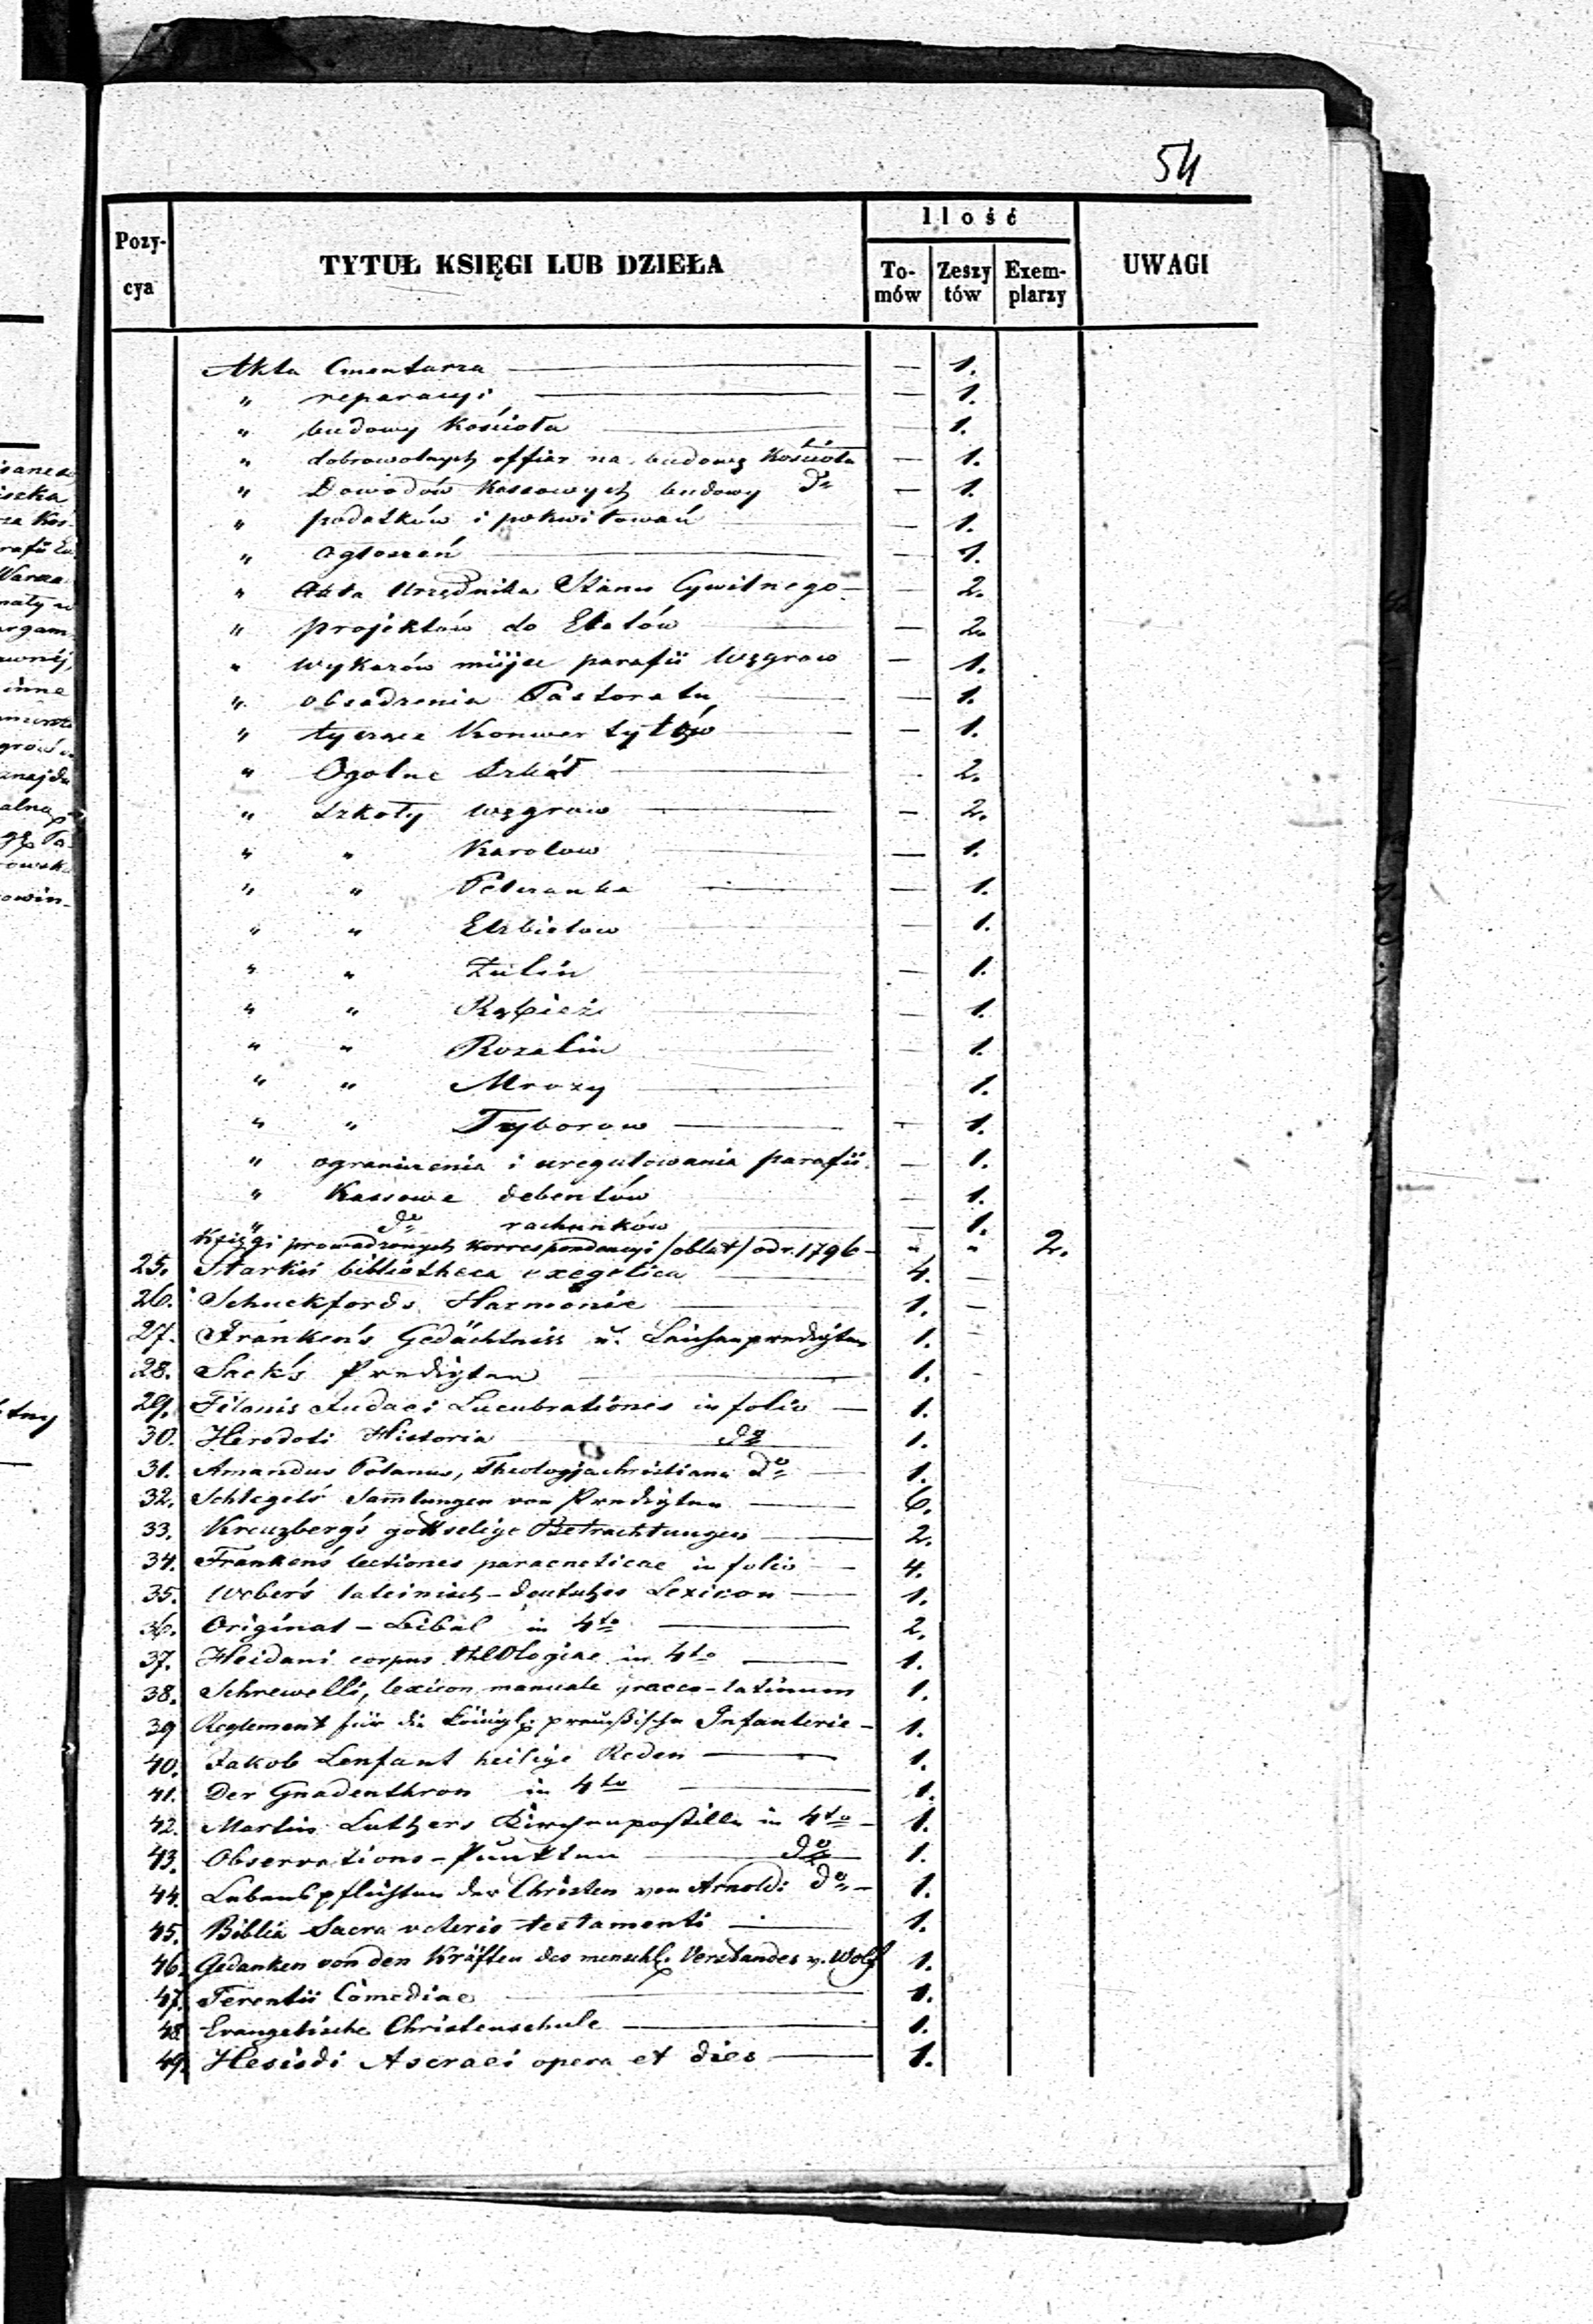 54
Pozy-
cya
TYTUŁ KSIĘGI LUB DZIEŁA
Ilość
To-
mów
Zeszy
tów
Exem-
plarzy
UWAGI
Akta Cmentarza — — 1.
" reparacyi — — 1.
" budowy Kościoła — 1.
" dobrowolnych offiar na budowę Kościoła — 1.
" Dowodów Kassowych budowy do — 1.
" podatków i pokwitowań — 1.
" Ogłoszeń — — 1.
" Akta Urzędnika Stanu Cywilnego — — 2.
" projektów do Etatów — 2.
" wykazów miejsc parafii Węgrow — 1.
" obsadzenia Pastoratu — 1.
" tyczące Konwertytów — 1.
" Ogolne Szkół — 2.
" Szkoły Węgrow — — 2.
" " Karolow — 1.
" " Peteranka — — 1.
" " Elzbietow — 1.
" " Zulin — 1.
" " Rąbież — 1.
" " Rozalin 1.
" " Mrozy — 1.
" " Tyborow — — 1.
" ograniczenia i uregulowania parafii — 1.
" Kassowe debentów — 1.
" do rachunków — — 1.
Księgi prowadzonych korrespondencyi /oblat/ od r. 1796 — " " 2.
25. Starkii bibliotheca exegetica — 4. —
26. Schuckfords Harmonie — 1. —
27. Franken's Gedächtniss u. Leichenpredigten 1. —
28. Sack's Predigten — 1. -
29. Filonis Judaei Lucubrationes in folio — 1.
30. Herodoti Historia — do 1.
31. Amandus Polanus, Theologja christiana do — 1.
32. Schlegel's Sammlungen von Predigten — 6.
33. Kreuzberg's gottselige Betrachtungen — 2.
34. Franken's lectiones paraeneticae in folio — 4.
35. Weber's lateinisch-deutsches Lexicon — 1.
36. Original-Bibel in 4to — 2.
37. Heidani corpus theologiae in 4to — 1.
38. Schrewelli, lexicon manuale graeco-latinum 1.
39 Reglement für die Königl. preußische Infanterie — 1.
40. Jakob Lenfant heilige Reden — 1.
41. Der Gnadenthron in 4to — 1.
42. Martin Luthers Kirchenpostille in 4to — 1.
43. Observations-Punkten — do 1.
44. Lebenspflichten der Christen von Arnold: do — 1.
45. Biblia Sacra veteris testamenti — 1.
46. Gedanken von den Kräften des menschl. Verstandes v. Wolf 1.
47. Terentii Comediae — 1.
48. Evangelische Christenschule — 1.
49. Hesiodi Ascraei opera et dies — 1.